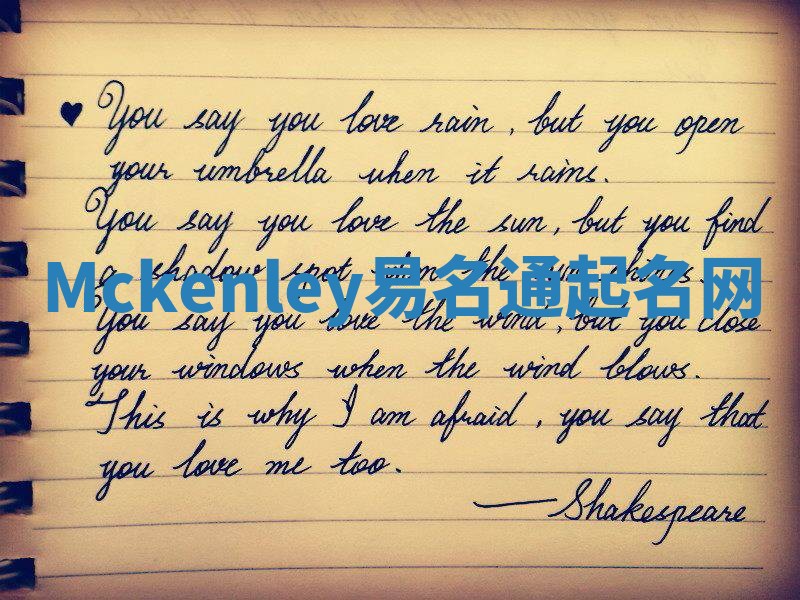 ♥ You say you love rain, but you open
your umbrella when it rains.
You say you love the sun, but you find
a shadow spot when the sun shines.
Mckenley易名通起名网
You say you love the wind, but you close
your windows when the wind blows.
This is why I am afraid, you say that
you love me too.
—Shakespeare